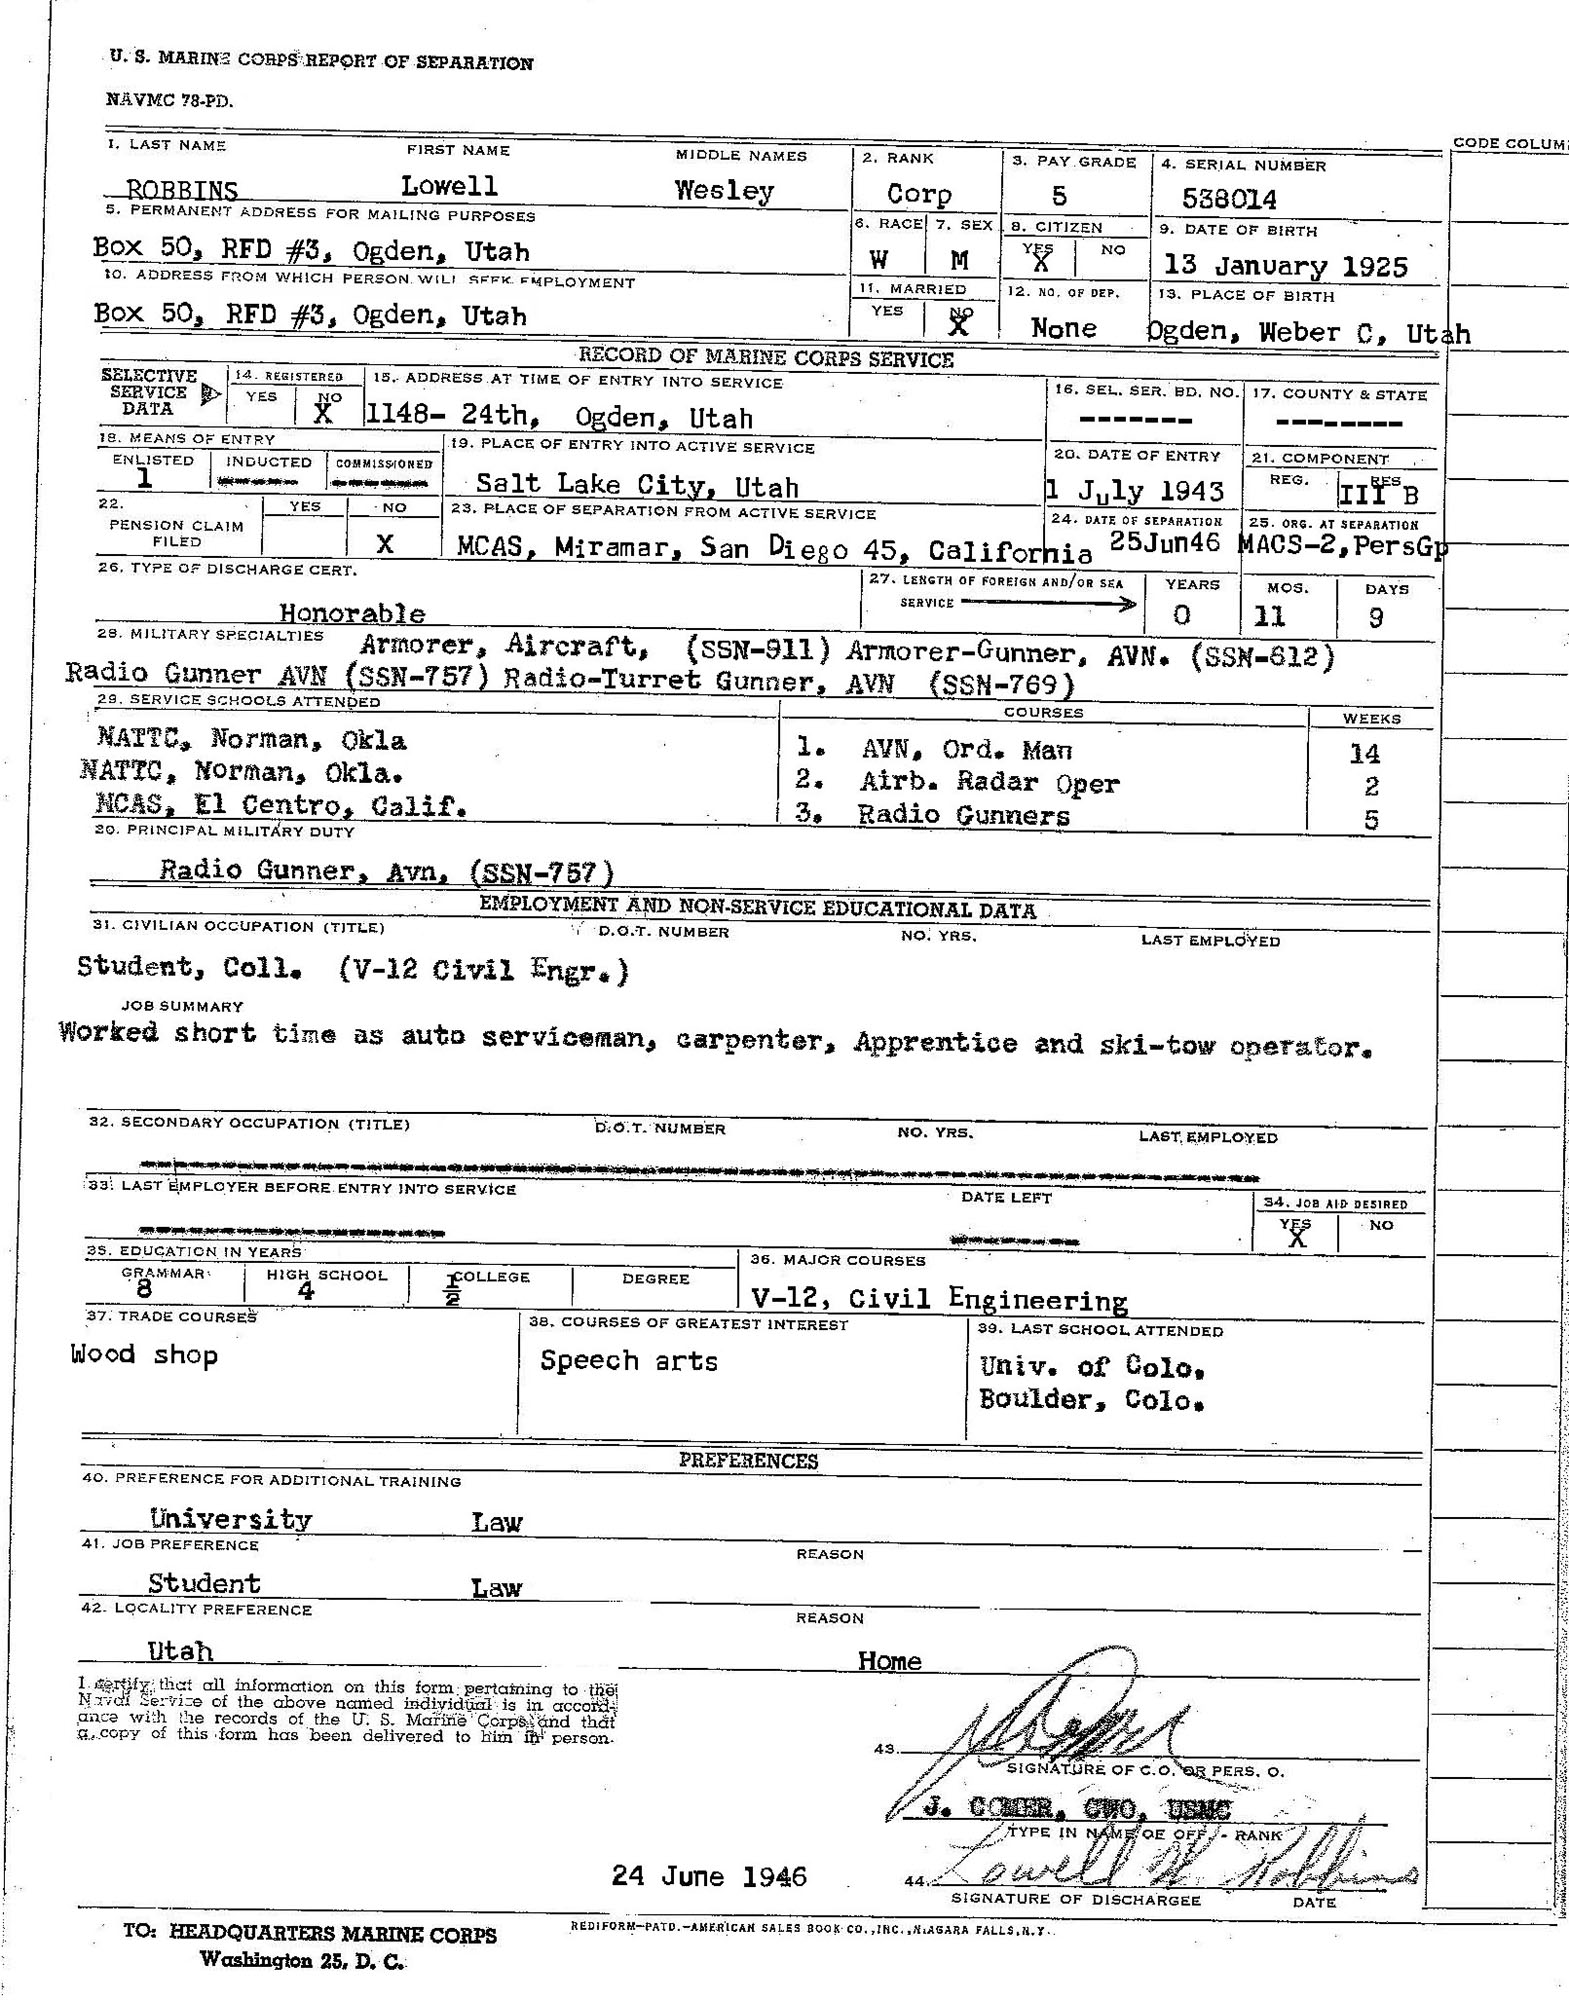 U. S. MARINE CORPS REPORT OF SEPARATION
NAVMC 78-PD.
CODE COLUM
1. LAST NAME FIRST NAME MIDDLE NAMES 2. RANK 3. PAY GRADE 4. SERIAL NUMBER
ROBBINS Lowell Wesley Corp 5 538014
5. PERMANENT ADDRESS FOR MAILING PURPOSES 6. RACE 7. SEX 8. CITIZEN 9. DATE OF BIRTH
YES NO
Box 50, RFD #3, Ogden, Utah W M X 13 January 1925
10. ADDRESS FROM WHICH PERSON WILL SEEK EMPLOYMENT 11. MARRIED 12. NO. OF DEP. 13. PLACE OF BIRTH
YES NO
Box 50, RFD #3, Ogden, Utah X None Ogden, Weber C, Utah
RECORD OF MARINE CORPS SERVICE
SELECTIVE SERVICE DATA 14. REGISTERED 15. ADDRESS AT TIME OF ENTRY INTO SERVICE 16. SEL. SER. BD. NO. 17. COUNTY & STATE
YES NO
X 1148- 24th, Ogden, Utah ------- --------
18. MEANS OF ENTRY 19. PLACE OF ENTRY INTO ACTIVE SERVICE 20. DATE OF ENTRY 21. COMPONENT
ENLISTED INDUCTED COMMISSIONED REG. RES
1 ------- -------- Salt Lake City, Utah 1 July 1943 III B
22. PENSION CLAIM FILED YES NO 23. PLACE OF SEPARATION FROM ACTIVE SERVICE 24. DATE OF SEPARATION 25. ORG. AT SEPARATION
X MCAS, Miramar, San Diego 45, California 25Jun46 MACS-2,PersGp
26. TYPE OF DISCHARGE CERT. 27. LENGTH OF FOREIGN AND/OR SEA SERVICE YEARS MOS. DAYS
Honorable 0 11 9
28. MILITARY SPECIALTIES Armorer, Aircraft, (SSN-911) Armorer-Gunner, AVN. (SSN-612)
Radio Gunner AVN (SSN-757) Radio-Turret Gunner, AVN (SSN-769)
29. SERVICE SCHOOLS ATTENDED COURSES WEEKS
NATTC, Norman, Okla 1. AVN, Ord. Man 14
NATTC, Norman, Okla. 2. Airb. Radar Oper 2
MCAS, El Centro, Calif. 3. Radio Gunners 5
30. PRINCIPAL MILITARY DUTY
Radio Gunner, Avn, (SSN-757)
EMPLOYMENT AND NON-SERVICE EDUCATIONAL DATA
31. CIVILIAN OCCUPATION (TITLE) D.O.T. NUMBER NO. YRS. LAST EMPLOYED
Student, Coll. (V-12 Civil Engr.)
JOB SUMMARY
Worked short time as auto serviceman, carpenter, Apprentice and ski-tow operator.
32. SECONDARY OCCUPATION (TITLE) D.O.T. NUMBER NO. YRS. LAST EMPLOYED
33. LAST EMPLOYER BEFORE ENTRY INTO SERVICE DATE LEFT 34. JOB AID DESIRED
YES NO
X
35. EDUCATION IN YEARS 36. MAJOR COURSES
GRAMMAR HIGH SCHOOL COLLEGE DEGREE
8 4 1/2 V-12, Civil Engineering
37. TRADE COURSES 38. COURSES OF GREATEST INTEREST 39. LAST SCHOOL ATTENDED
Wood shop Speech arts Univ. of Colo.
Boulder, Colo.
PREFERENCES
40. PREFERENCE FOR ADDITIONAL TRAINING
University Law
41. JOB PREFERENCE REASON
Student Law
42. LOCALITY PREFERENCE REASON
Utah Home
I certify that all information on this form pertaining to the
Naval Service of the above named individual is in accord-
ance with the records of the U. S. Marine Corps and that
a copy of this form has been delivered to him in person.
43.
SIGNATURE OF C.O. OR PERS. O.
J. COMER, CWO, USMC
TYPE IN NAME OF OFF. - RANK
24 June 1946 44. Lowell W. Robbins
SIGNATURE OF DISCHARGEE DATE
TO: HEADQUARTERS MARINE CORPS REDIFORM—PATD.—AMERICAN SALES BOOK CO., INC., NIAGARA FALLS, N.Y.
Washington 25, D. C.